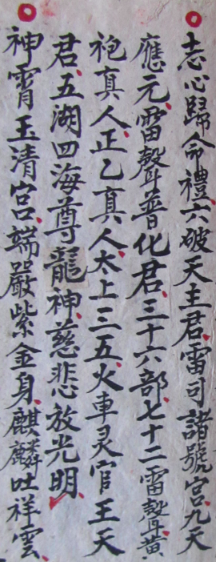 志心歸命禮六破天主君雷司諸號宮九天
應元雷聲普化君三十六部七十二雷聲黄
袍真人正乙真人太上三五火車灵官王天
君五湖四海尊龍神慈悲放光明
神霄玉清宮端嚴紫金身麒麟吐祥雲